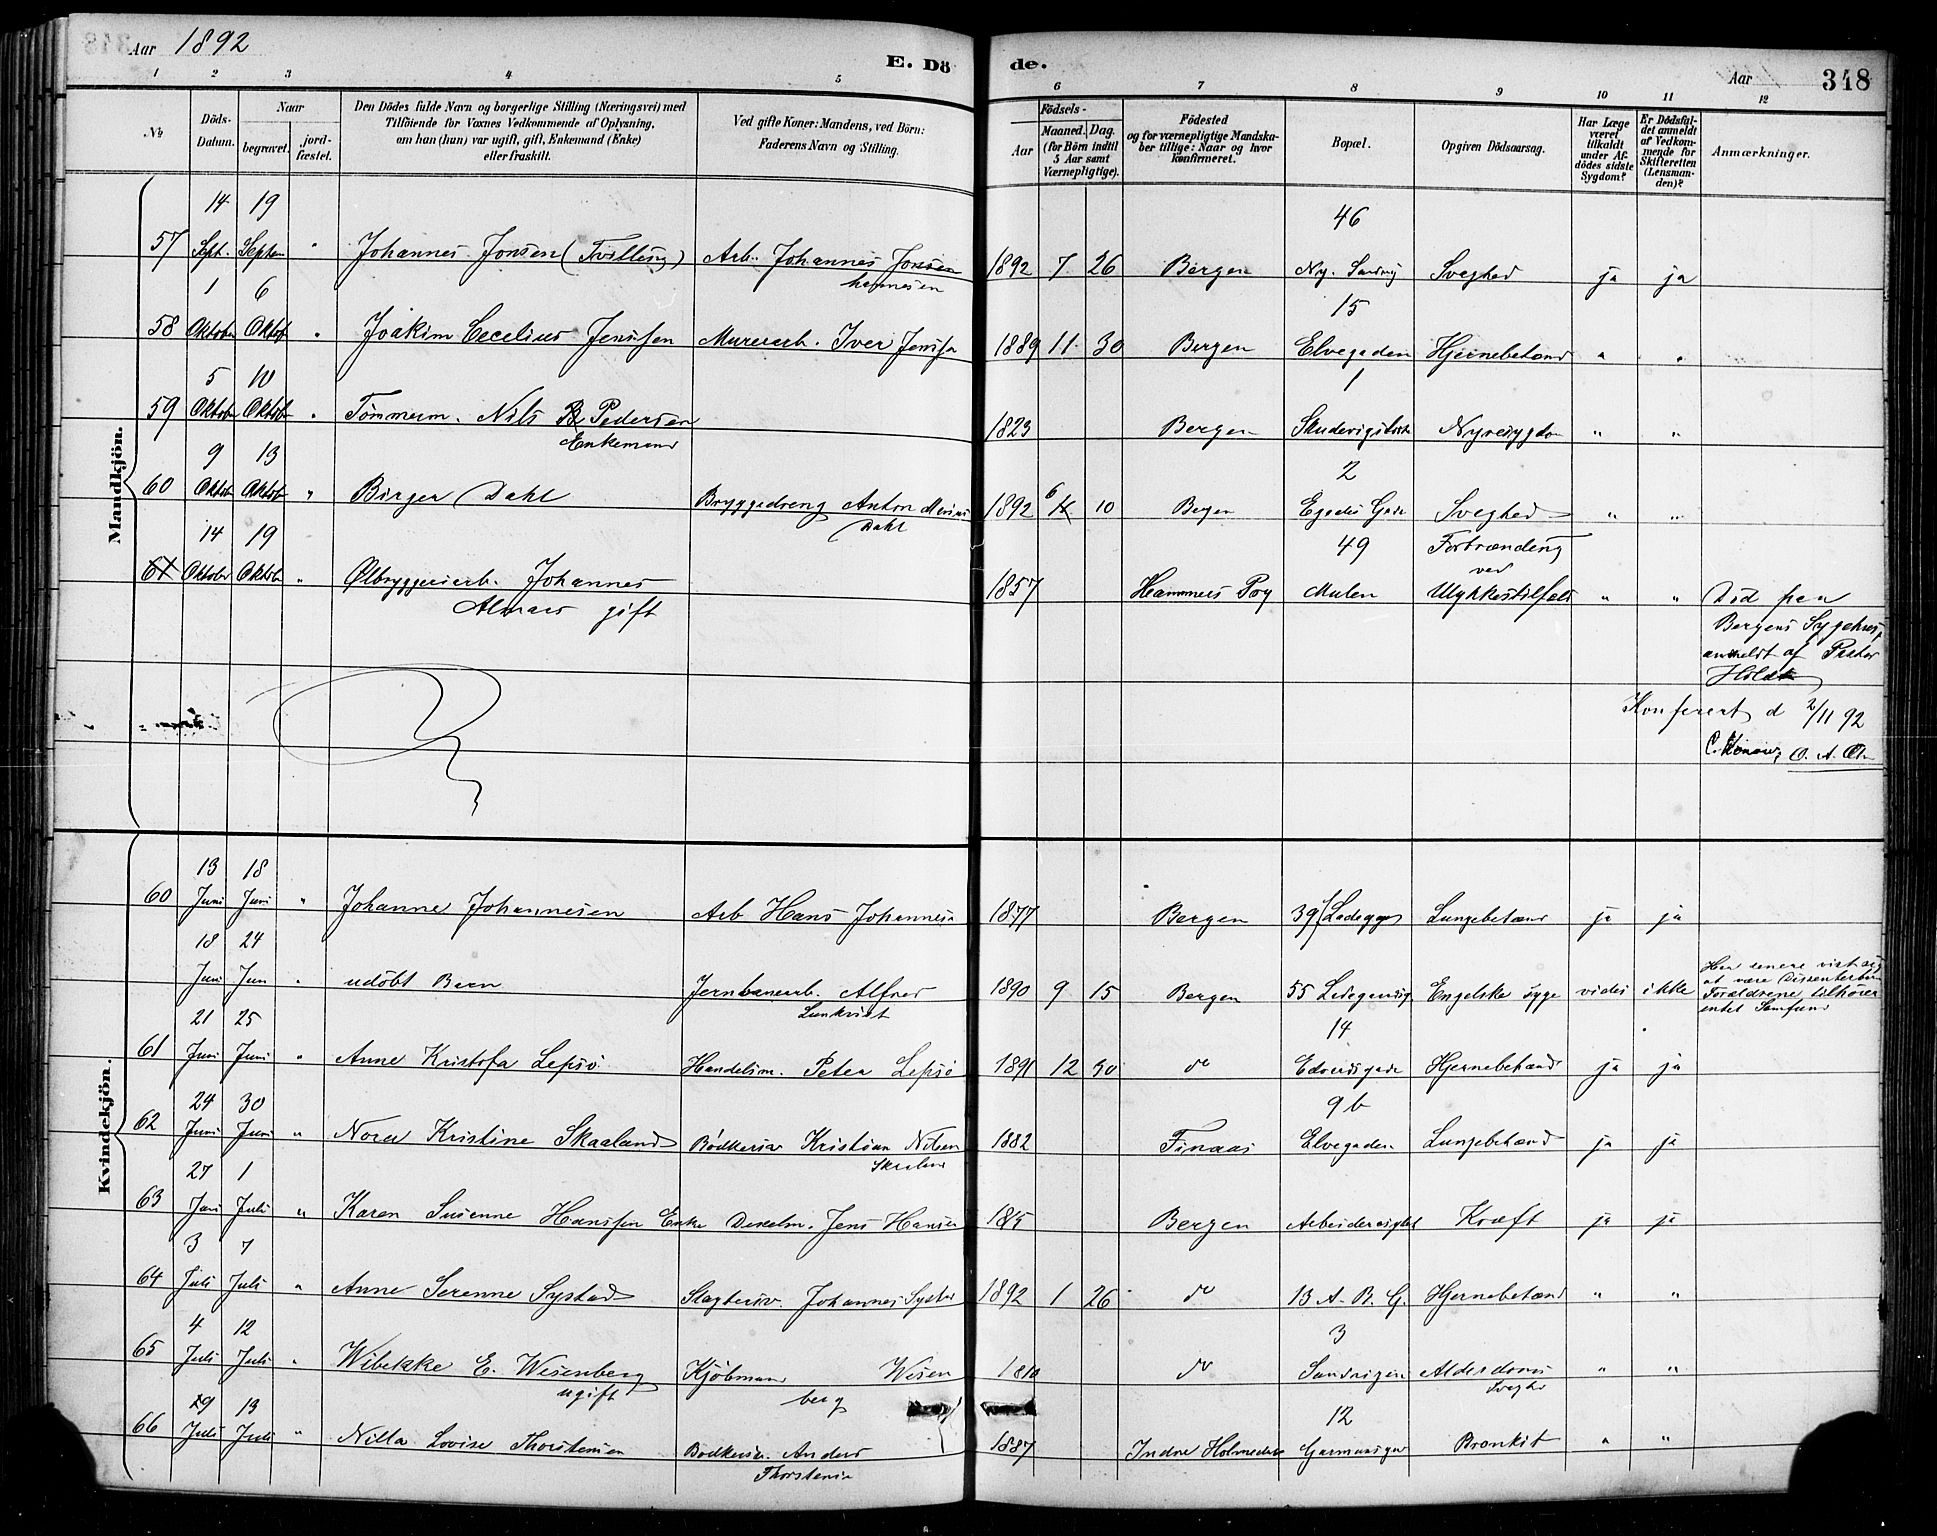 Aar 1892
E. Dö
de.
Aar
348
1 2 3 4 5 6 7 8 9 10 11 12
No
Döds-
Datum.
Naar
begravet.
jord-
fæstet.
Den Dödes fulde Navn og borgerlige Stilling (Næringsvei) med
Tilföiende for Voxnes Vedkommende af Oplysning,
om han (hun) var ugift, gift, Enkemand (Enke)
eller fraskilt.
Ved gifte Koner: Mandens, ved Börn:
Faderens Navn og Stilling.
Födsels-
Aar
Maaned. Dag.
(for Börn indtil
5 Aar samt
Værnepligtige).
Födested
og for værnepligtige Mandska-
ber tillige: Naar og hvor
konfirmeret.
Bopæl.
Opgiven Dödsaarsag.
Har Læge
været
tilkaldt
under Af-
dödes sidste
Sygdom?
Er Dödsfal-
det anmeldt
af Vedkom-
mende for
Skifteretten
(Lensman-
den)?
Anmærkninger.
Mandkjön.
14 19 46
57 Sept. Septem " Johannes Jonsen (Tvilling) Arb. Johannes Jonsen 1892 7 26 Bergen Ny. Sandvig Svaghed ja ja
hannesen
1 6 15
58 Oktober Oktob " Joakim Cecelius Jenssen Murerarb. Iver Jenssen 1889 11 30 Bergen Elvegaden Hjernebetænd " "
5 10 1
59 Oktober Oktober " Tømmerm. Nils Pedersen 1823 Bergen Nyresygdom " "
Enkemand
9 13 2
60 Oktob Oktober " Birger Dahl Bryggedreng Anton Marius 1892 6 10 Bergen Egedes Gade Svaghed " "
Dahl
14 19 49 Forbrænding
ved
61 Oktober Oktober " Ølbryggeriarb. Johannes 1857 Hammers Pgj Mulen Ulykkestilfeld " " Død paa
Almaas gift
Bergens Sygehus,
anmeldt af Pastor
Holdt
Konferert d 2/11 92
C. Konow, O. A.
Kvindekjön.
13 18
60 Juni Juni " Johanne Johannesen Arb Hans Johannesen 1877 Bergen 39 Ladegdg Lungebetænd ja ja
18 24
Juni Juni " udöbt Barn Jernbanearb. Alfred 1890 9 15 Bergen 55 Ladegaardsg Engelske syge vides ikke Har senere vist sig
Lunkvist
at være Dissenterbarn
Forældrene tilhører
intet Samfund
21 25 14
61 Juni Juni " Anne Kristofa Lepsö Handelsm. Peter Lepsö 1891 12 30 do Edvardsgade Hjernebetænd ja ja
24 30 9 b
62 Juni Juni " Nora Kristine Skaaland Bödkersv Kristian Nilsen 1882 Finaas Elvegaden Lungebetænd ja ja
27 1
63 Juni Juli " Karen Susanne Hanssen Enke Jens Hansen 1815 Bergen Kræft ja ja
3 7
64 Juli Juli " Anne Serenne Systad Slagtersv. Johannes Systad 1892 1 26 do 13 A. B. G. Hjernebetænd " "
4 12 3
65 Juli Juli " Wibekke E. Wesenberg Kjöbmand Wesen 1810 do Sandvigen Alderdoms " "
ugift berg Svaghd
29 13 12
66 Juli Juli " Nilla Lovise Thorstensen Bodkersv. Anders 1887 Indre Holmedal Bronkit " "
Thorstensen